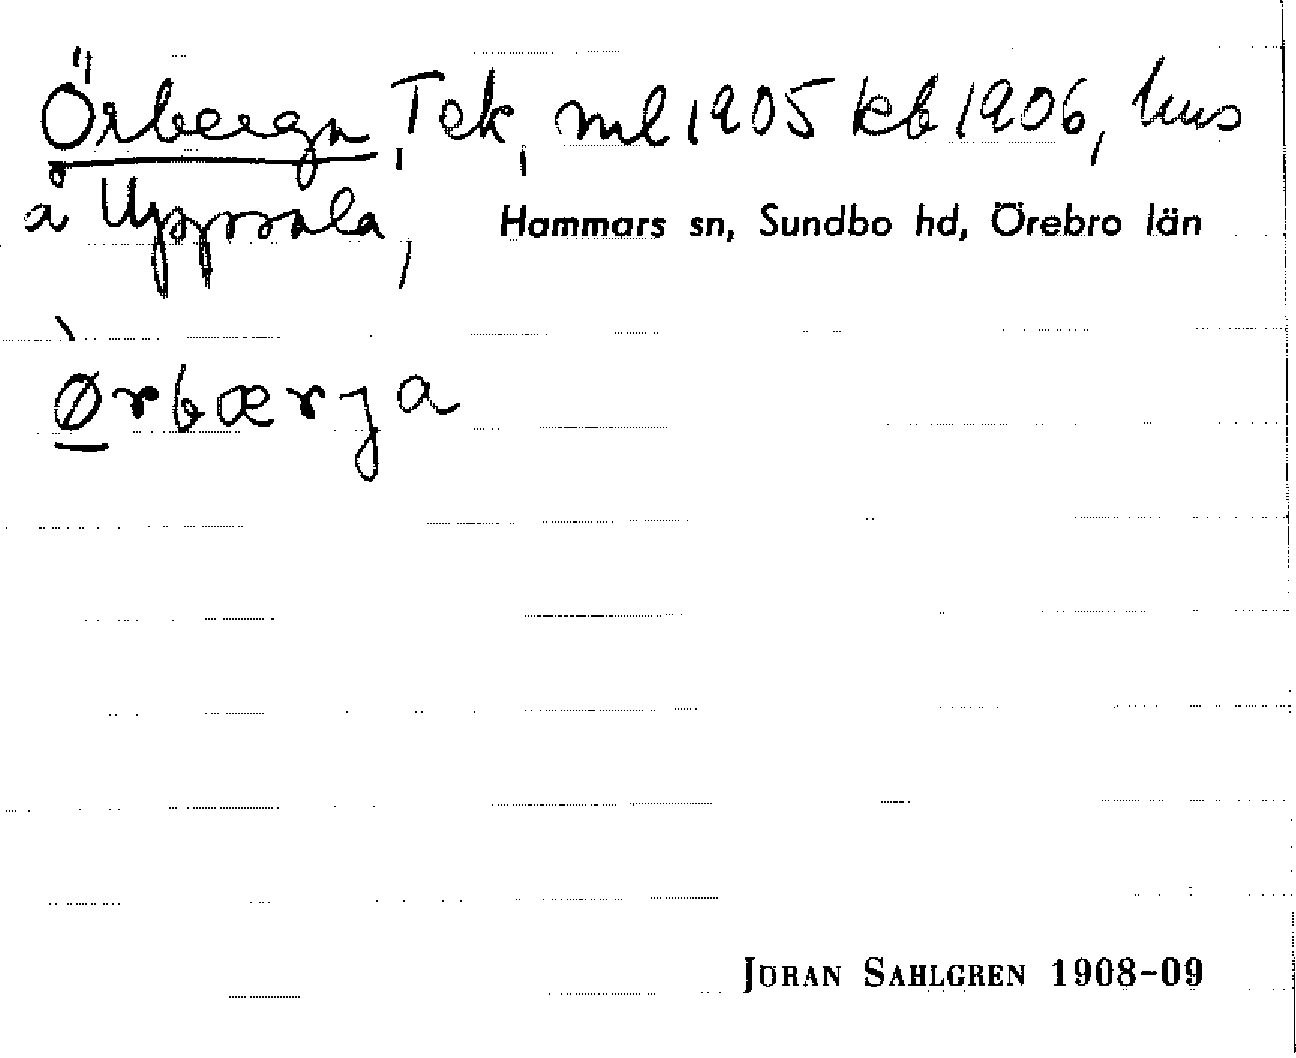 Örberga, Tek, ml 1905 kb 1906, hus
å Uppsala, Hammars sn, Sundbo hd, Örebro län
Ørbærja
JÖRAN SAHLGREN 1908-09